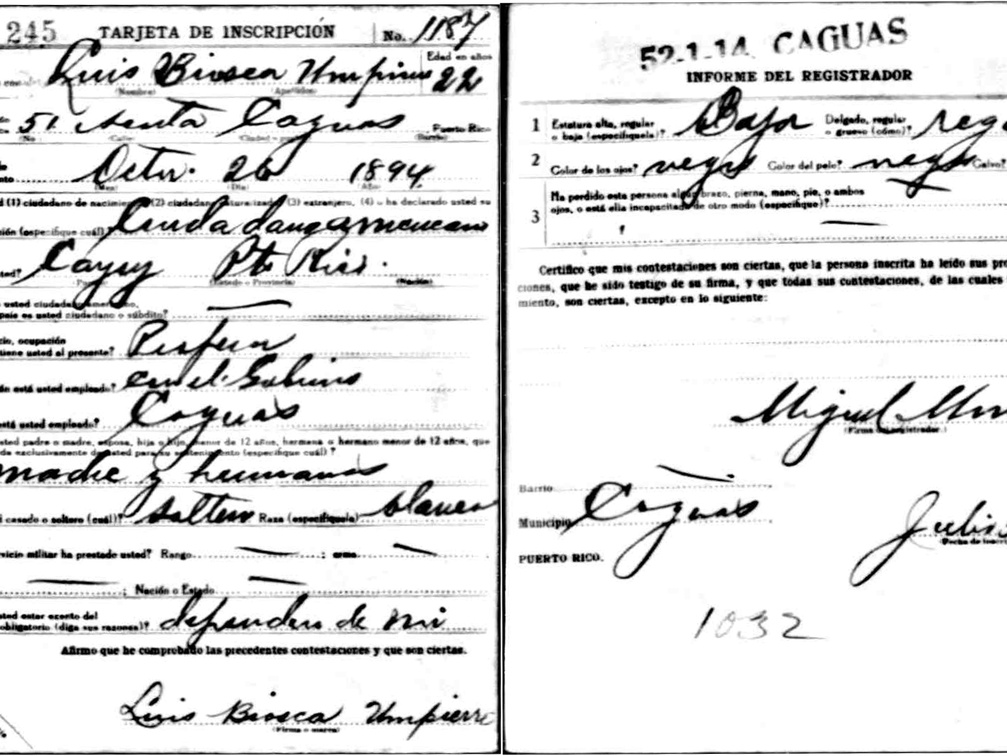 245 TARJETA DE INSCRIPCIÓN No. 1187
Luis Biosca Umpierre Edad en años 22
(Nombre) (Apellidos)
51 Caguas Puerto Rico
(No.) (Calle)
Octu. 26 1894
(Mes) (Día) (Año)
(1) ciudadano de nacimiento (2) ciudadano naturalizado (3) extranjero, (4) o ha declarado usted su
(especifique cuál)? Ciudadano americano
Cayey Pto Rico.
(Estado o Provincia) (Nación)
usted ciudadano americano,
país es usted ciudadano o súbdito?
ocupación
tiene usted al presente? Profesor
está usted empleado? en el Gobierno
está usted empleado? Caguas
usted padre o madre, esposa, hija o hijo, menor de 12 años, hermana o hermano menor de 12 años, que
exclusivamente de usted para su sostenimiento (especifique cuál) ?
madre y hermanas
casado o soltero (cuál)? soltero Raza (especifíquela) blanca
servicio militar ha prestado usted? Rango ; arma
; Nación o Estado
usted estar exento del
obligatorio (diga sus razones)? dependen de mi
Afirmo que he comprobado las precedentes contestaciones y que son ciertas.
Luis Biosca Umpierre
(Firma o marca)
52-1-14 CAGUAS
INFORME DEL REGISTRADOR
1 Estatura alta, regular o baja (especifíquela)? Baja Delgado, regular o grueso (cómo)? reg
2 Color de los ojos? negro Color del pelo? negro Calvo?
3 Ha perdido esta persona algún brazo, pierna, mano, pie, o ambos
ojos, o está ella incapacitada de otro modo (especifique)?
Certifico que mis contestaciones son ciertas, que la persona inscrita ha leído sus pro
ciones, que he sido testigo de su firma, y que todas sus contestaciones, de las cuales
miento, son ciertas, excepto en lo siguiente:
Miguel
(Firma del registrador.)
Barrio
Municipio Caguas
Julio
PUERTO RICO.
1032